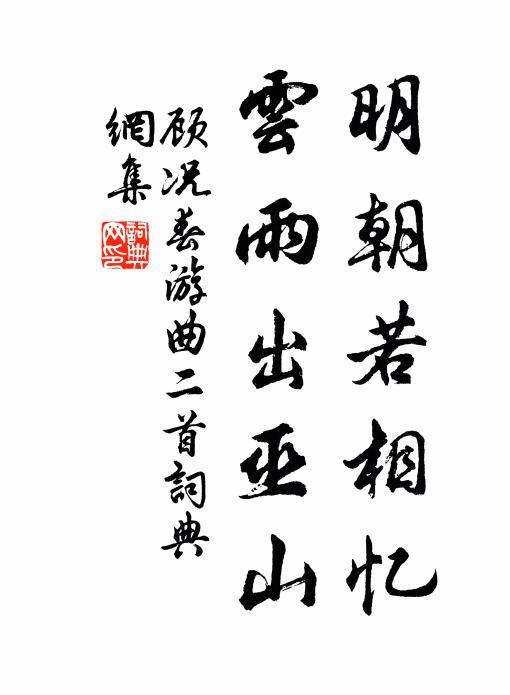 明朝若相忆
雲雨出巫山
顾况春游曲二首詞典
網集
詞典
网印